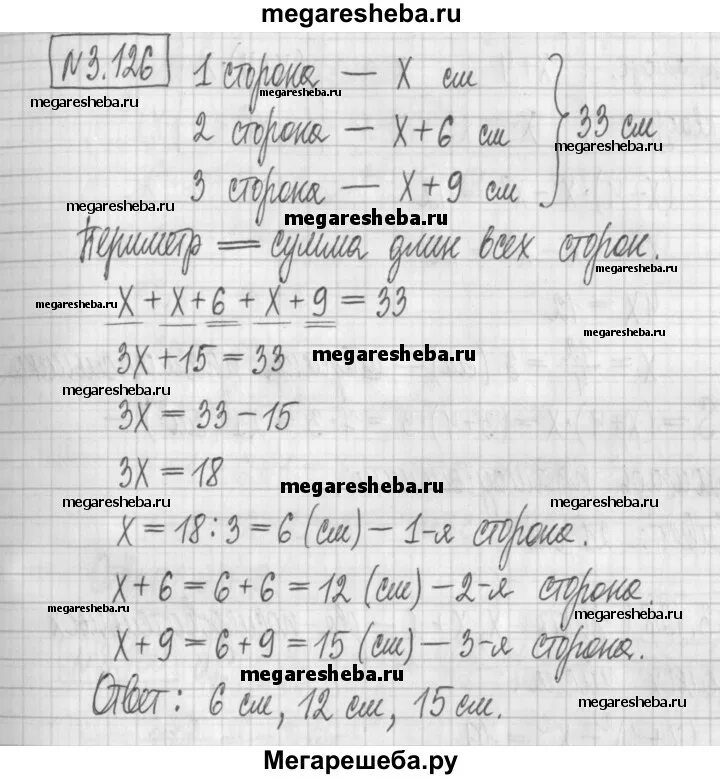 megaresheba.ru
№3.126 1 сторона — x см
megaresheba.ru megaresheba.ru
2 сторона — x+6 см 33 см
megaresheba.ru
3 сторона — x+9 см
megaresheba.ru
megaresheba.ru
Периметр = сумма длин всех сторон.
megaresheba.ru
megaresheba.ru x + x+6 + x+9 = 33
megaresheba.ru
3x+15 = 33 megaresheba.ru
megaresheba.ru
3x = 33 - 15
3x = 18
megaresheba.ru
megaresheba.ru megaresheba.ru
x = 18:3 = 6 (см) — 1-я сторона.
x+6 = 6+6 = 12 (см) — 2-я сторона.
megaresheba.ru megaresheba.ru
x+9 = 6+9 = 15 (см) — 3-я сторона.
megaresheba.ru
Ответ: 6 см, 12 см, 15 см.
megaresheba.ru
Мегарешеба.ру